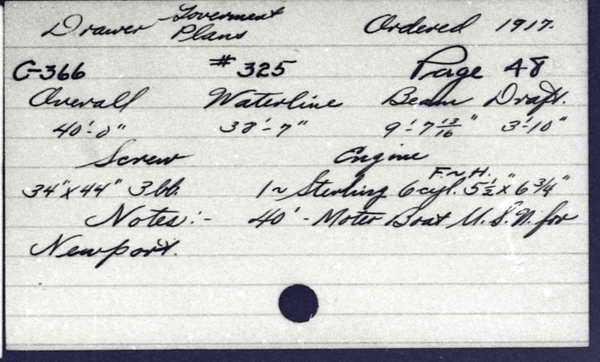 Drawer Goverment Plans Ordered 1917.
C-366 #325 Page 48
Overall Waterline Beam Draft.
40'-0" 38'-7" 9'-7 13/16" 3'-10"
Screw Engine
34"x44" 3 bb. 1~ Sterling 6 cyl. F.~H. 5 1/2" x 6 3/4"
Notes:- 40'- Moter Boat U.S.N. for
Newport.